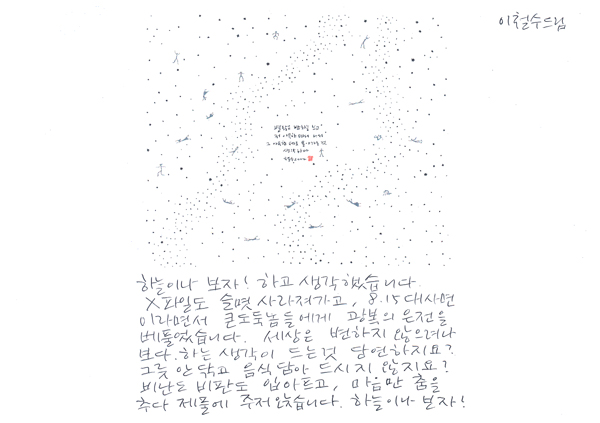 이철수드림
하늘이나 보자! 하고 생각했습니다.
X파일도 슬몃 사라져가고, 8.15대사면
이라면서 큰도둑놈들에게 광복의 은전을
베풀었습니다. 세상은 변하지 않으려나
보다. 하는 생각이 드는것 당연하지요?
그릇 안 닦고 음식 담아 드시지 않지요?
비난도 비판도 입아프고, 마음만 춤을
추다 제풀에 주저앉습니다. 하늘이나 보자!